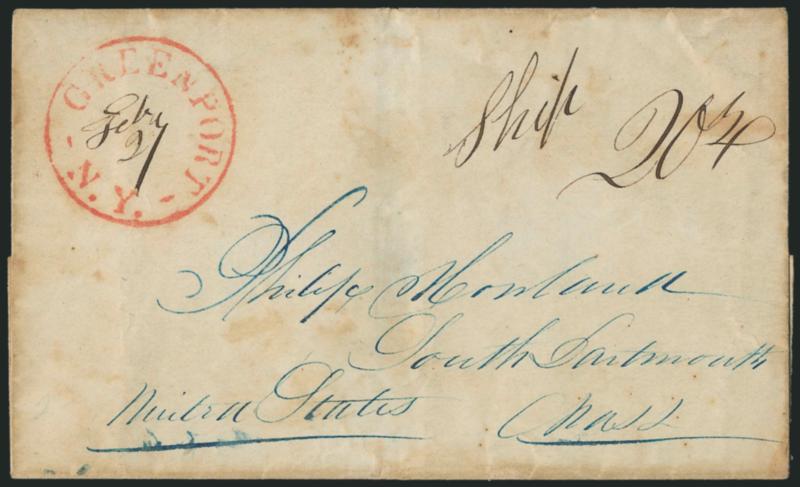 GREENPORT N.Y.
Feby
27
Ship
20 3/4
Philip Howland
South Dartmouth
United States
Mass